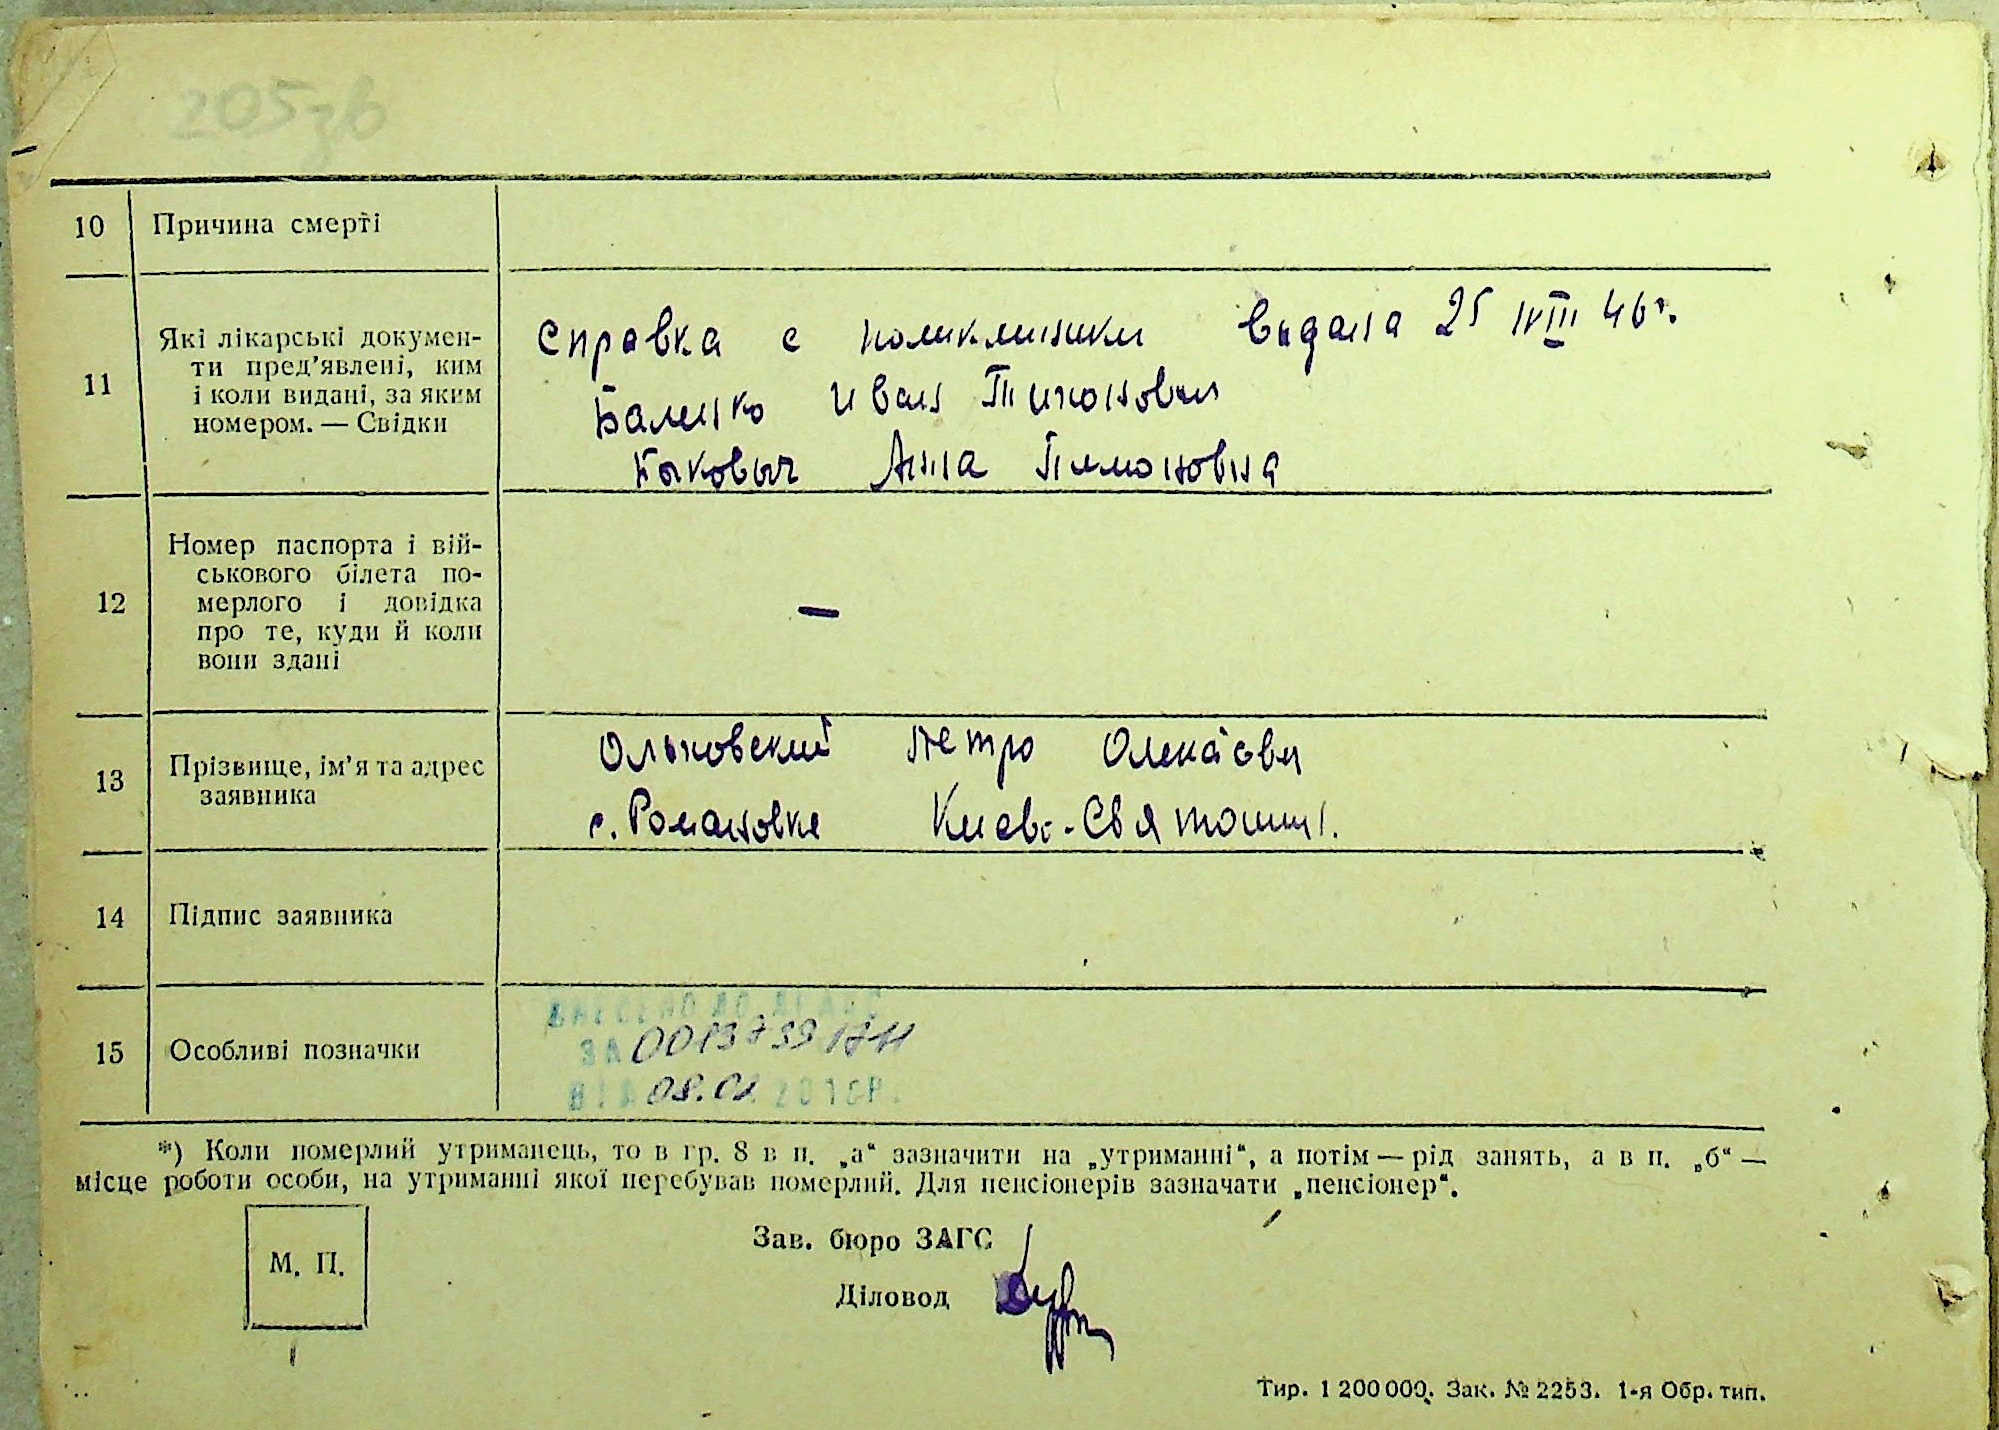 205зв
10 Причина смерті
11 Які лікарські докумен-
ти пред’явлені, ким
і коли видані, за яким
номером. — Свідки
Справка с поликлиники видана 25 VIII 46 г.
Иван Тихонович
Анна Тимоновна
12 Номер паспорта і вій-
ськового білета по-
мерлого і довідка
про те, куди й коли
вони здані
—
13 Прізвище, ім’я та адрес
заявника
Ольховский Петро
с. Романовка Киево-Святошин.
14 Підпис заявника
15 Особливі позначки
ВНЕСЕНО ДО ДРАЦС
ЗА
ВІД 08.01 201 Р.
*) Коли померлий утриманець, то в гр. 8 в п. „а“ зазначити на „утриманні“, а потім — рід занять, а в п. „б“ —
місце роботи особи, на утриманні якої перебував померлий. Для пенсіонерів зазначати „пенсіонер“.
М. П.
Зав. бюро ЗАГС
Діловод
Тир. 1 200 000. Зак. № 2253. 1-я Обр. тип.